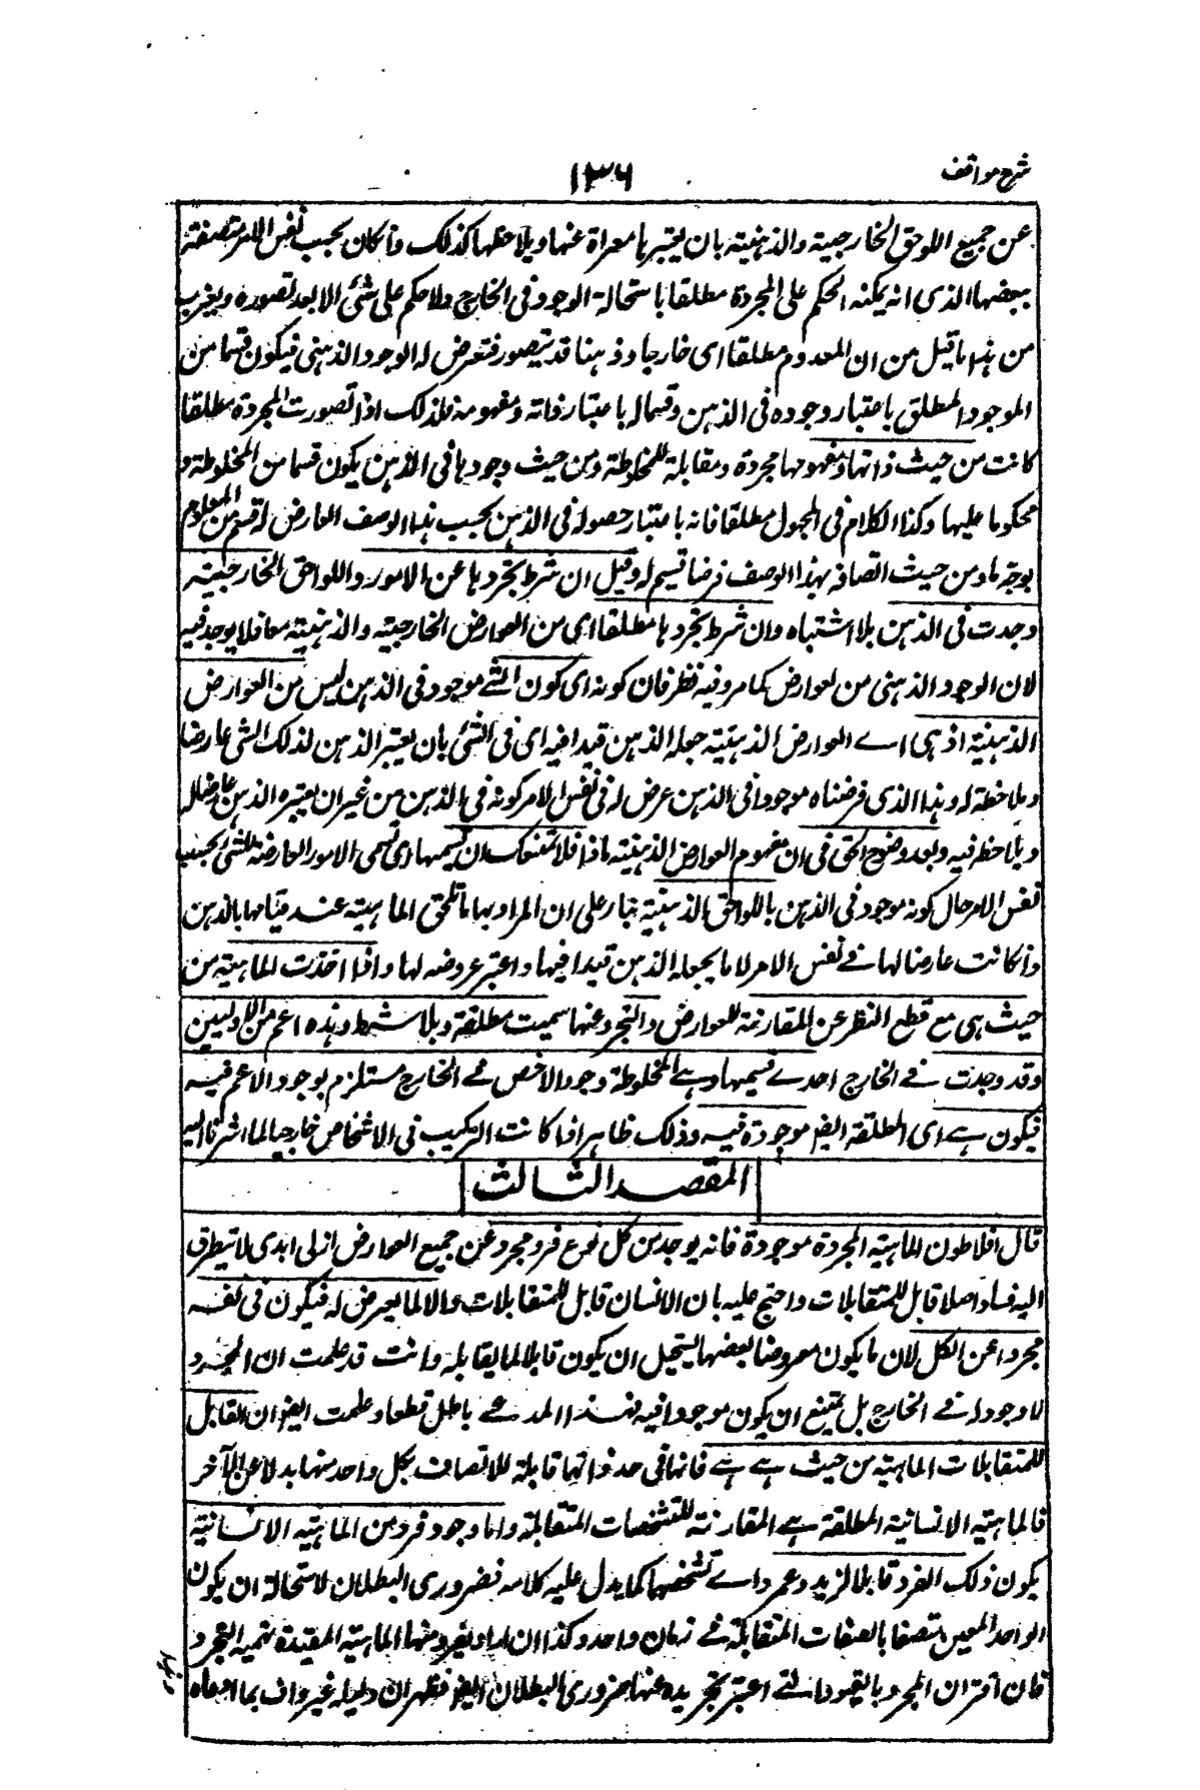 شرح مواقف
١٣٦
عن جميع اللواحق الخارجية والذهنية بان يعتبرها معراة عنها ويلاحظها كذلك وان كان بحسب نفس الامر متصفة
ببعضها الذى انه يمكنه الحكم على المجردة مطلقا باستحالة الوجود فى الخارج ولا حكم على شئ الا بعد تصوره ويقرب
من هذا ما قيل من ان المعدوم مطلقا اى خارجا وذهنا قد يتصور فتعرض له الوجود الذهنى فيكون قسما من
الموجود المطلق باعتبار وجوده فى الذهن وقسيما له باعتبار ذاته ومفهومه فلذلك اذا تصورت المجردة مطلقا
كانت من حيث ذاتها ومفهومها مجردة ومقابلة للمخلوطة ومن حيث وجودها فى الذهن يكون قسما من المخلوطة و
محكوما عليها وكذا الكلام فى المجهول مطلقا فانه باعتبار حصوله فى الذهن بحسب هذا الوصف العارض له قسم من المعلوم
بوجه ما ومن حيث اتصافه بهذا الوصف فرضا قسيم له وقيل ان شرط تجردها عن الامور واللواحق الخارجية
وجدت فى الذهن بلا اشتباه وان شرط تجردها مطلقا اى من العوارض الخارجية والذهنية معا فلا يوجد فيه
لان الوجود الذهنى من العوارض كما مر وفيه نظر فان كونه اى كون الشئ موجودا فى الذهن ليس من العوارض
الذهنية اذ هى اے العوارض الذهنية جعله الذهن قيدا فيه اى فى الشئ بان يعتبر الذهن لذلك الشئ عارضا
ويلاحظه له وهذا الذى فرضناه موجودا فى الذهن عرض له فى نفس الامر كونه فى الذهن من غير ان يعتبره الذهن عارضا له
ويلاحظه فيه وبعد وضوح الحق فى ان مفهوم العوارض الذهنية ماذا فلا تمنعك ان تسميها اى تسمى الامور العارضة للشئ بحسب
نفس الامر حال كونه موجود فى الذهن باللواحق الذهنية بناء على ان المراد بها ما تلحق الماهية عند قيامها بالذهن
وان كانت عارضا لها فے نفس الامر لا ما يجعله الذهن قيدا فيها واعتبر عروضه لها واذا اخذت الماهية من
حيث هى مع قطع النظر عن المقارنة للعوارض والتجرد عنها سميت مطلقة وبلا شرط وهذه اعم من الاوليين
وقد وجدت فے الخارج احدے قسيمها وهے المخلوطة وجود الاخص فے الخارج مستلزم لوجود الاعم فيه
فيكون هے اى المطلقة ايضا موجودة فيه وذلك ظاهر اذا كانت التركيب فى الاشخاص خارجيا لما اشرنا اليه
المقصد الثالث
قال افلاطون الماهية المجردة موجودة فانه يوجد من كل نوع فرد مجرد عن جميع العوارض ازلى ابدى لا يتطرق
اليه فساد اصلا قابل للمتقابلات واحتج عليه بان الانسان قابل للمتقابلات والا لما يعرض له فيكون فى نفسه
مجردا عن الكل لان ما يكون معروضا لبعضها يستحيل ان يكون قابلا لما يقابله وانت قد علمت ان المجرد
لا وجود له فے الخارج بل يمتنع ان يكون موجودا فيه فهذا المدعے باطل قطعا وعلمت ايضا ان القابل
للمتقابلات الماهية من حيث هے هے فانها فى حد ذاتها قابلة للاتصاف بكل واحد منها بدلا عن الآخر
فالماهية الانسانية المطلقة هے المقارنة للتشخصات المتقابلة واما وجود فرد من الماهية الانسانية
يكون ذلك الفرد قابلا لزيد وعمرو اے لتشخصهما كما يدل عليه كلامه فضرورى البطلان لاستحالة ان يكون
الواحد المعين متصفا بالصفات المتقابلة فے زمان واحد وكذا ان اراد بفرد منها الماهية المقيدة بقيد التجرد
فان اقتران المجرد بالقيود التے اعتبر تجريده عنها ضرورى البطلان ايضا فظهر ان دليله غير واف بما ادعاه